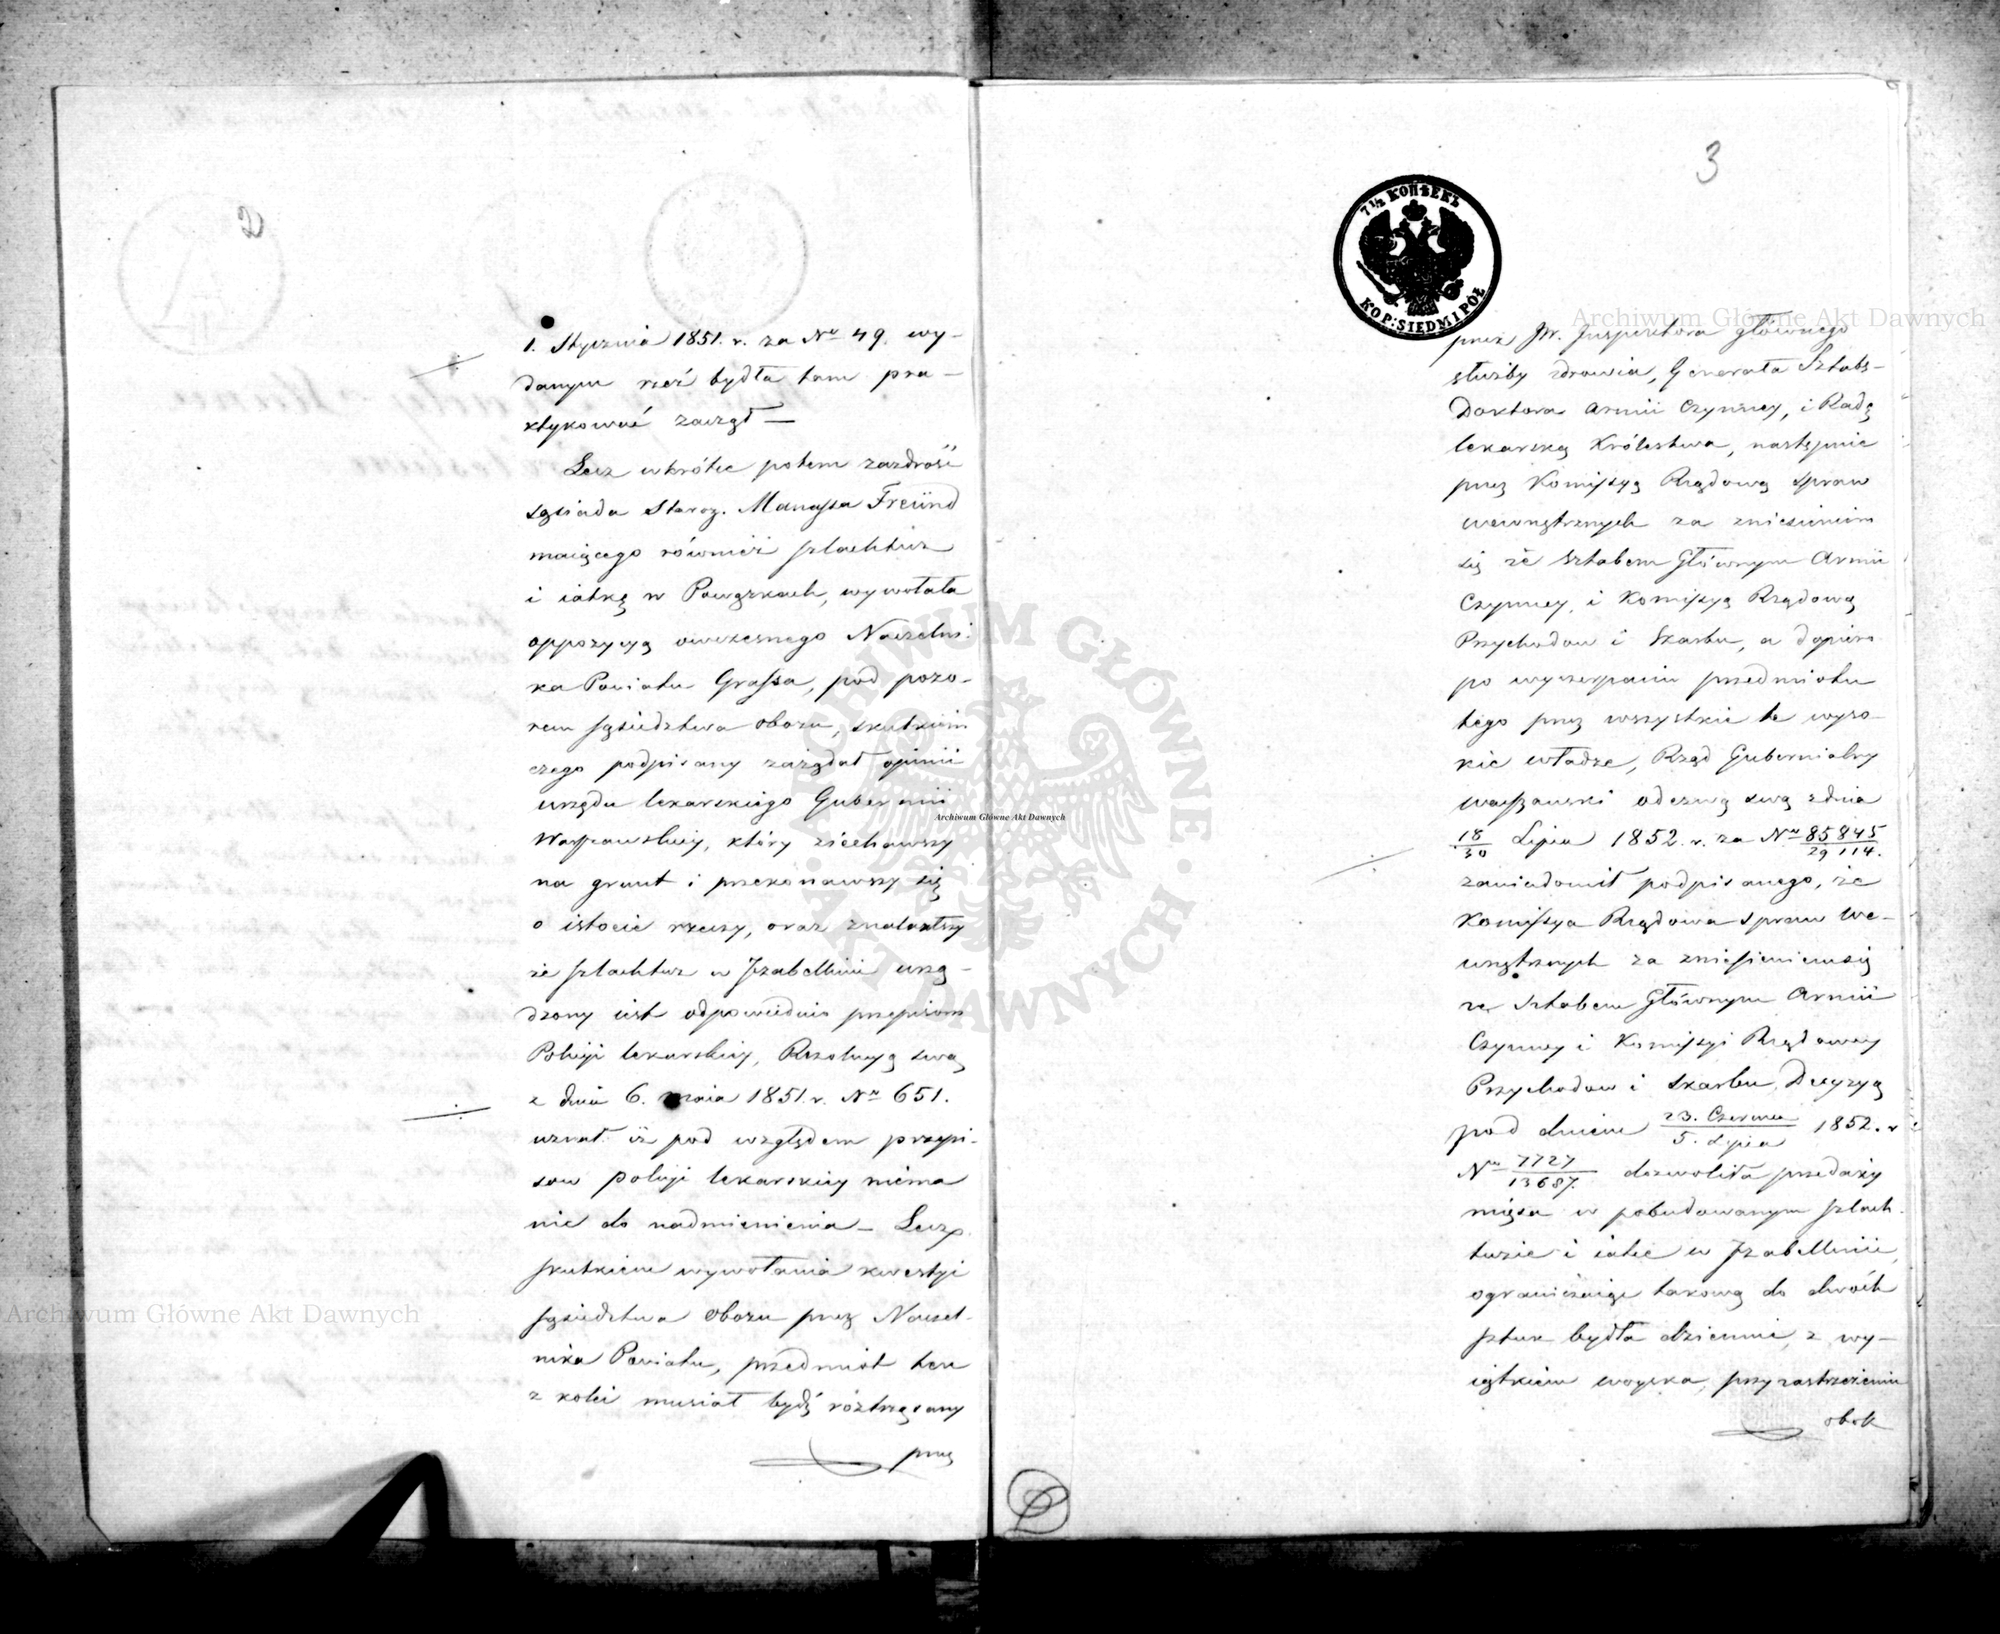 2
1. Stycznia 1851. r. za No 49. wy-
danym rzeź bydła tam pra-
ktykować zaczął —
Lecz wkrótce potem zazdrość
sąsiada Staroz. Manassa Freünd
maiącego również szlachtuz
i iatkę w Powązkach, wywołała
oppozycyą owczesnego Naczelni-
ka Powiatu Grassa, pod pozo-
rem sąsiedztwa obozu, skutkiem
czego podpisany zażądał opinii
urzędu lekarskiego Gubernii
Warszawskiey, który ziechawszy
na grunt i przekonawszy się
o istocie rzeczy, oraz znalazłszy
że szlachtuz w Izabellinie urzą-
dzony iest odpowiednio przepisom
Policyi lekarskiey, Rezolucyą swą
z dnia 6. maia 1851. r. No 651.
uznał iż pod względem przepi-
sow policyi lekarskiey niema
nic do nadmienienia — Lecz
skutkiem wywołania kwestyi
sąsiedztwa obozu przez Naczel-
nika Powiatu, przedmiot ten
z kolei musiał bydź roztrząsany
przez
3
7½ КОПѢЕКЪ
KOP: SIEDM I PÓŁ
przez JW. Inspektora głównego
służby zdrowia, Generała Sztabs-
Doktora Armii Czynney, i Radę
lekarską Królestwa, następnie
przez Komissyą Rządową spraw
wewnętrznych za zniesieniem
się ze Sztabem Głównym Armii
Czynney, i Komissyą Rządową
Przychodow i Skarbu, a dopiero
po wyczerpaniu przedmiotu
tego przez wszystkie te wyso-
kie władze, Rząd Gubernialny
Warszawski odezwą swą z dnia
18/30 Lipca 1852. r. za No 85845/29114.
zawiadomił podpisanego, że
Komissya Rządowa spraw We-
wnętrznych za zniesieniem się
ze Sztabem Głównym Armii
Czynney i Komissyi Rządowey
Przychodow i Skarbu, Decyzyą
pod dniem 23. Czerwca/5. Lipca 1852. r
No 7727/13687. dozwoliła przedaży
mięsa w pobudowanym szlach-
tuzie i iatce w Izabellinie,
ograniczaiąc takową do dwóch
sztuk bydła dziennie, z wy-
iątkiem woyska, przy zastrzeżeniu
obok
Archiwum Główne Akt Dawnych
Archiwum Główne Akt Dawnych
Archiwum Główne Akt Dawnych
ARCHIWUM GŁÓWNE AKT DAWNYCH